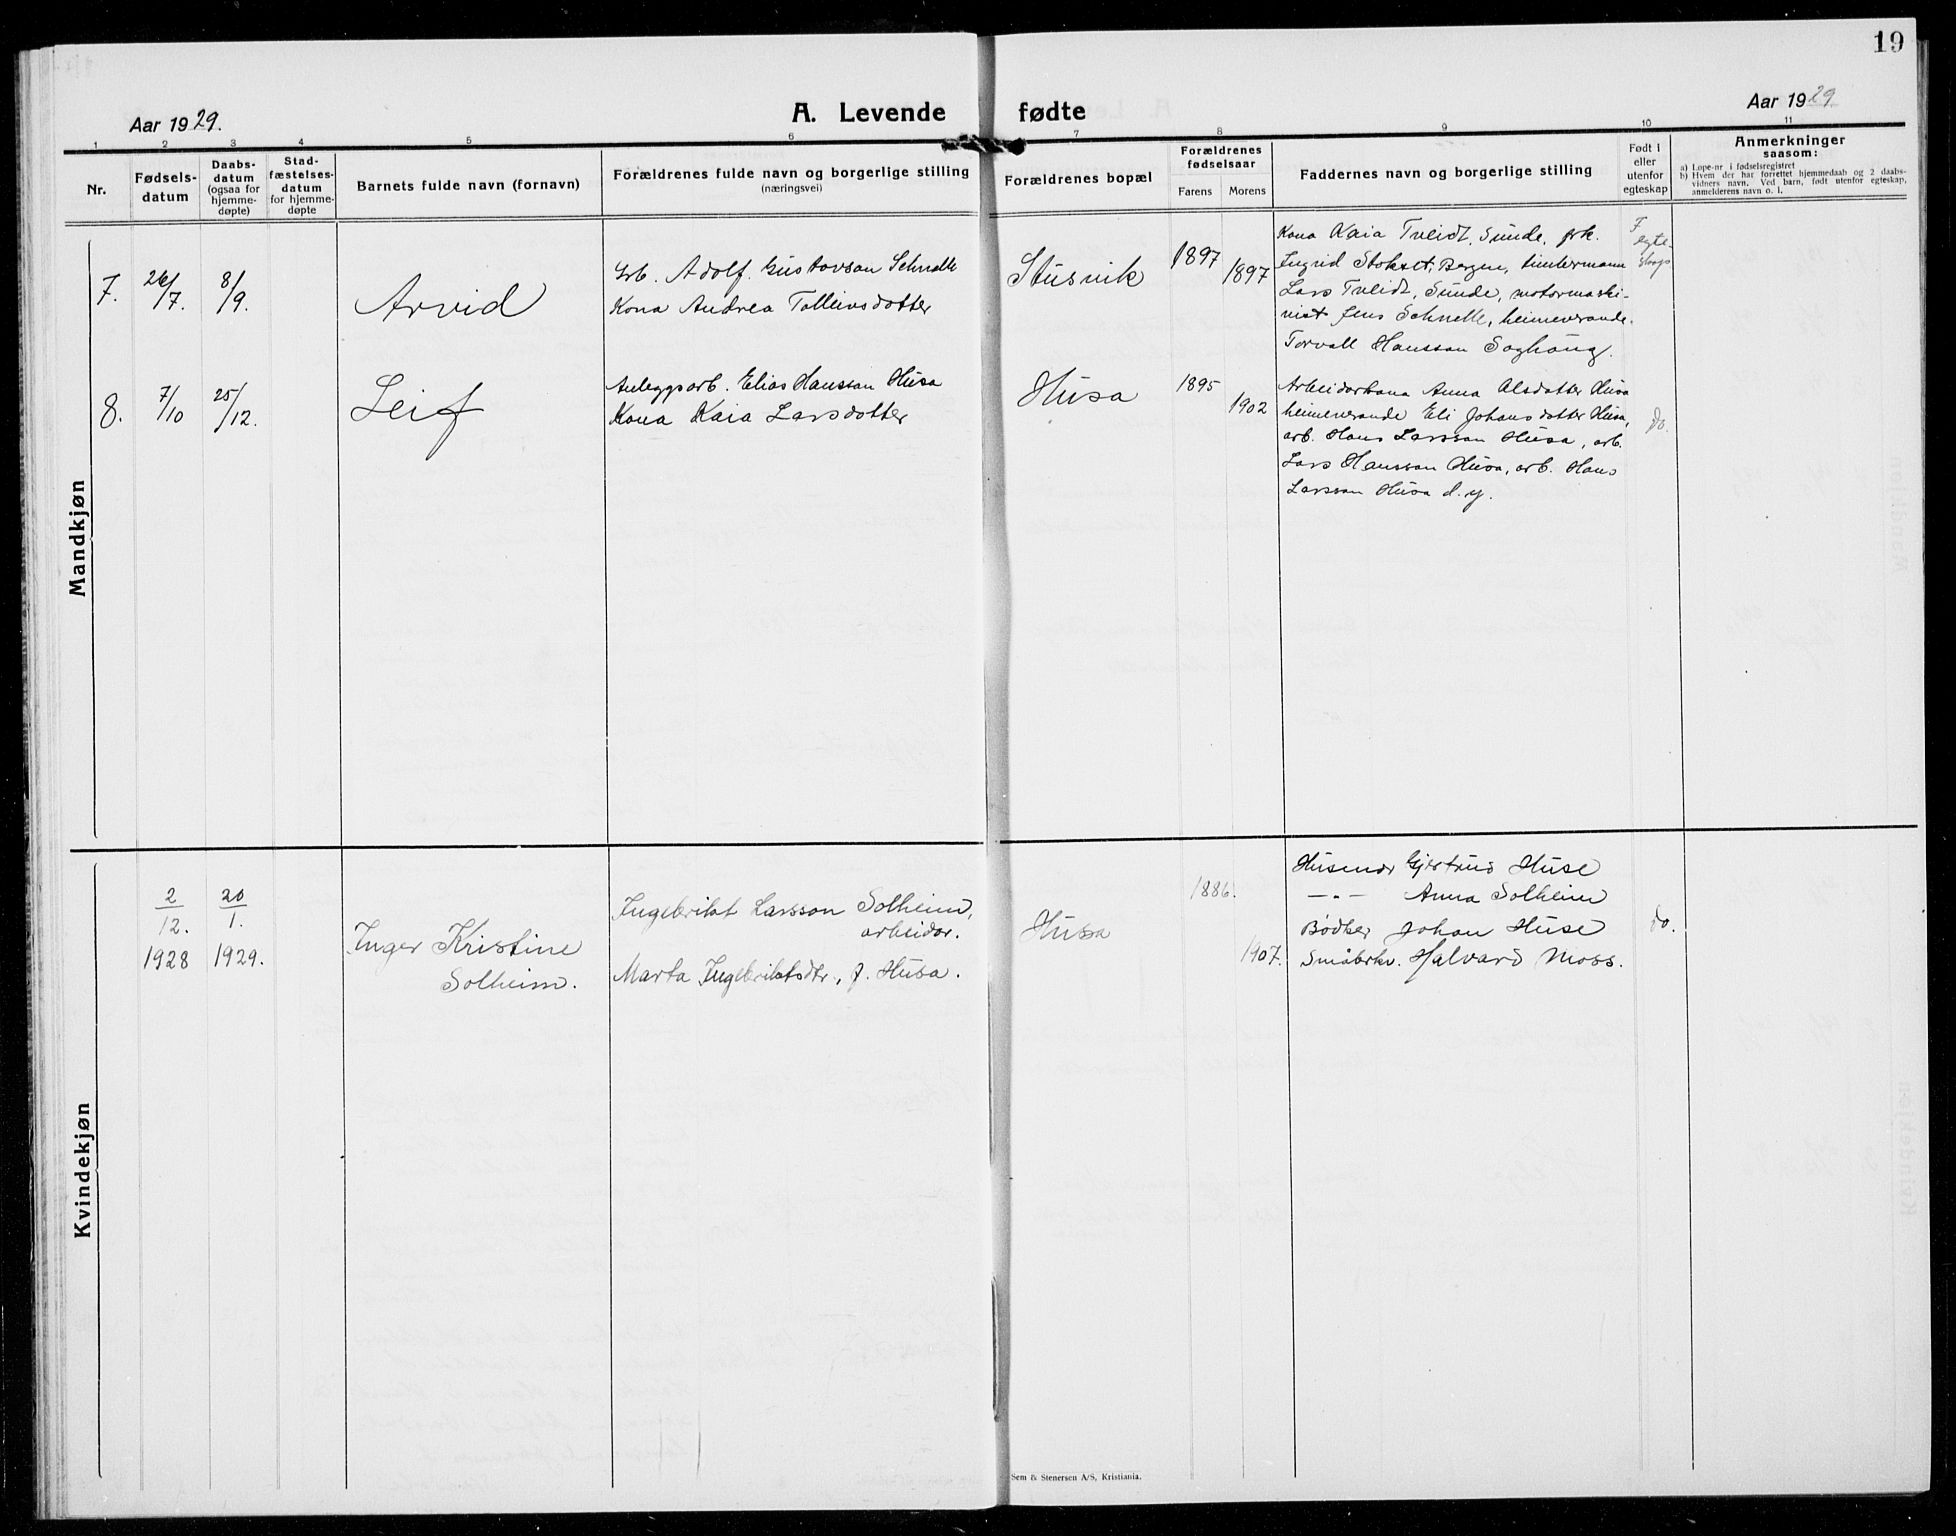 19
Aar 1929.
A. Levende fødte
Aar 1929
1 2 3 4 5 6 7 8 9 10 11
Nr.
Fødsels-
datum
Daabs-
datum
(ogsaa for
hjemme-
døpte)
Stad-
fæstelses-
datum
for hjemme-
døpte
Barnets fulde navn (fornavn)
Forældrenes fulde navn og borgerlige stilling
(næringsvei)
Forældrenes bopæl
Forældrenes
fødselsaar
Farens Morens
Faddernes navn og borgerlige stilling
Født i
eller
utenfor
egteskap
Anmerkninger
saasom:
a) Løpe-nr. i fødselsregistret
b) Hvem der har forrettet hjemmedaab og 2 daabs-
vidners navn. Ved barn, født utenfor egteskap,
anmelderens navn o. l.
Mandkjøn
7. 26/7. 8/9.
Arvid
Arb. Adolf Gustavson Schnelle
Kona Andrea Tolleivsdotter
Stusvik
1897
1897
Kona Kaia Tveidt, Sunde, frk.
Ingrid Stokset, Bergen, timbermann
Lars Tveidt, Sunde, motormaski-
nist Jens Schnelle, heimeverande
Torvall Hansson Soghaug.
F
egte-
skap
8. 7/10 25/12.
Leif
Anleggsarb. Elias Hansson Husa
Kona Kaia Larsdotter
Husa
1895
1902
Arbeidarkona Anna Olsdotter Husa
heimeverande Eli Johansdotter Husa,
arb. Hans Larsson Husa, arb.
Lars Hansson Husa, arb. Hans
Larsson Husa d. y.
do.
Kvindekjøn
2/12. 1928
20/1. 1929.
Inger Kristine
Solheim.
Ingebrikt Larsson Solheim,
arbeidar.
Marta Ingebriktsdtr, f. Husa.
Husa
1886.
1907.
Husmor Gjertrud Huse
— " — Anna Solheim
Bødker Johan Huse
Småbrkv. Halvard Moss.
do.
Sem & Stenersen A/S, Kristiania.